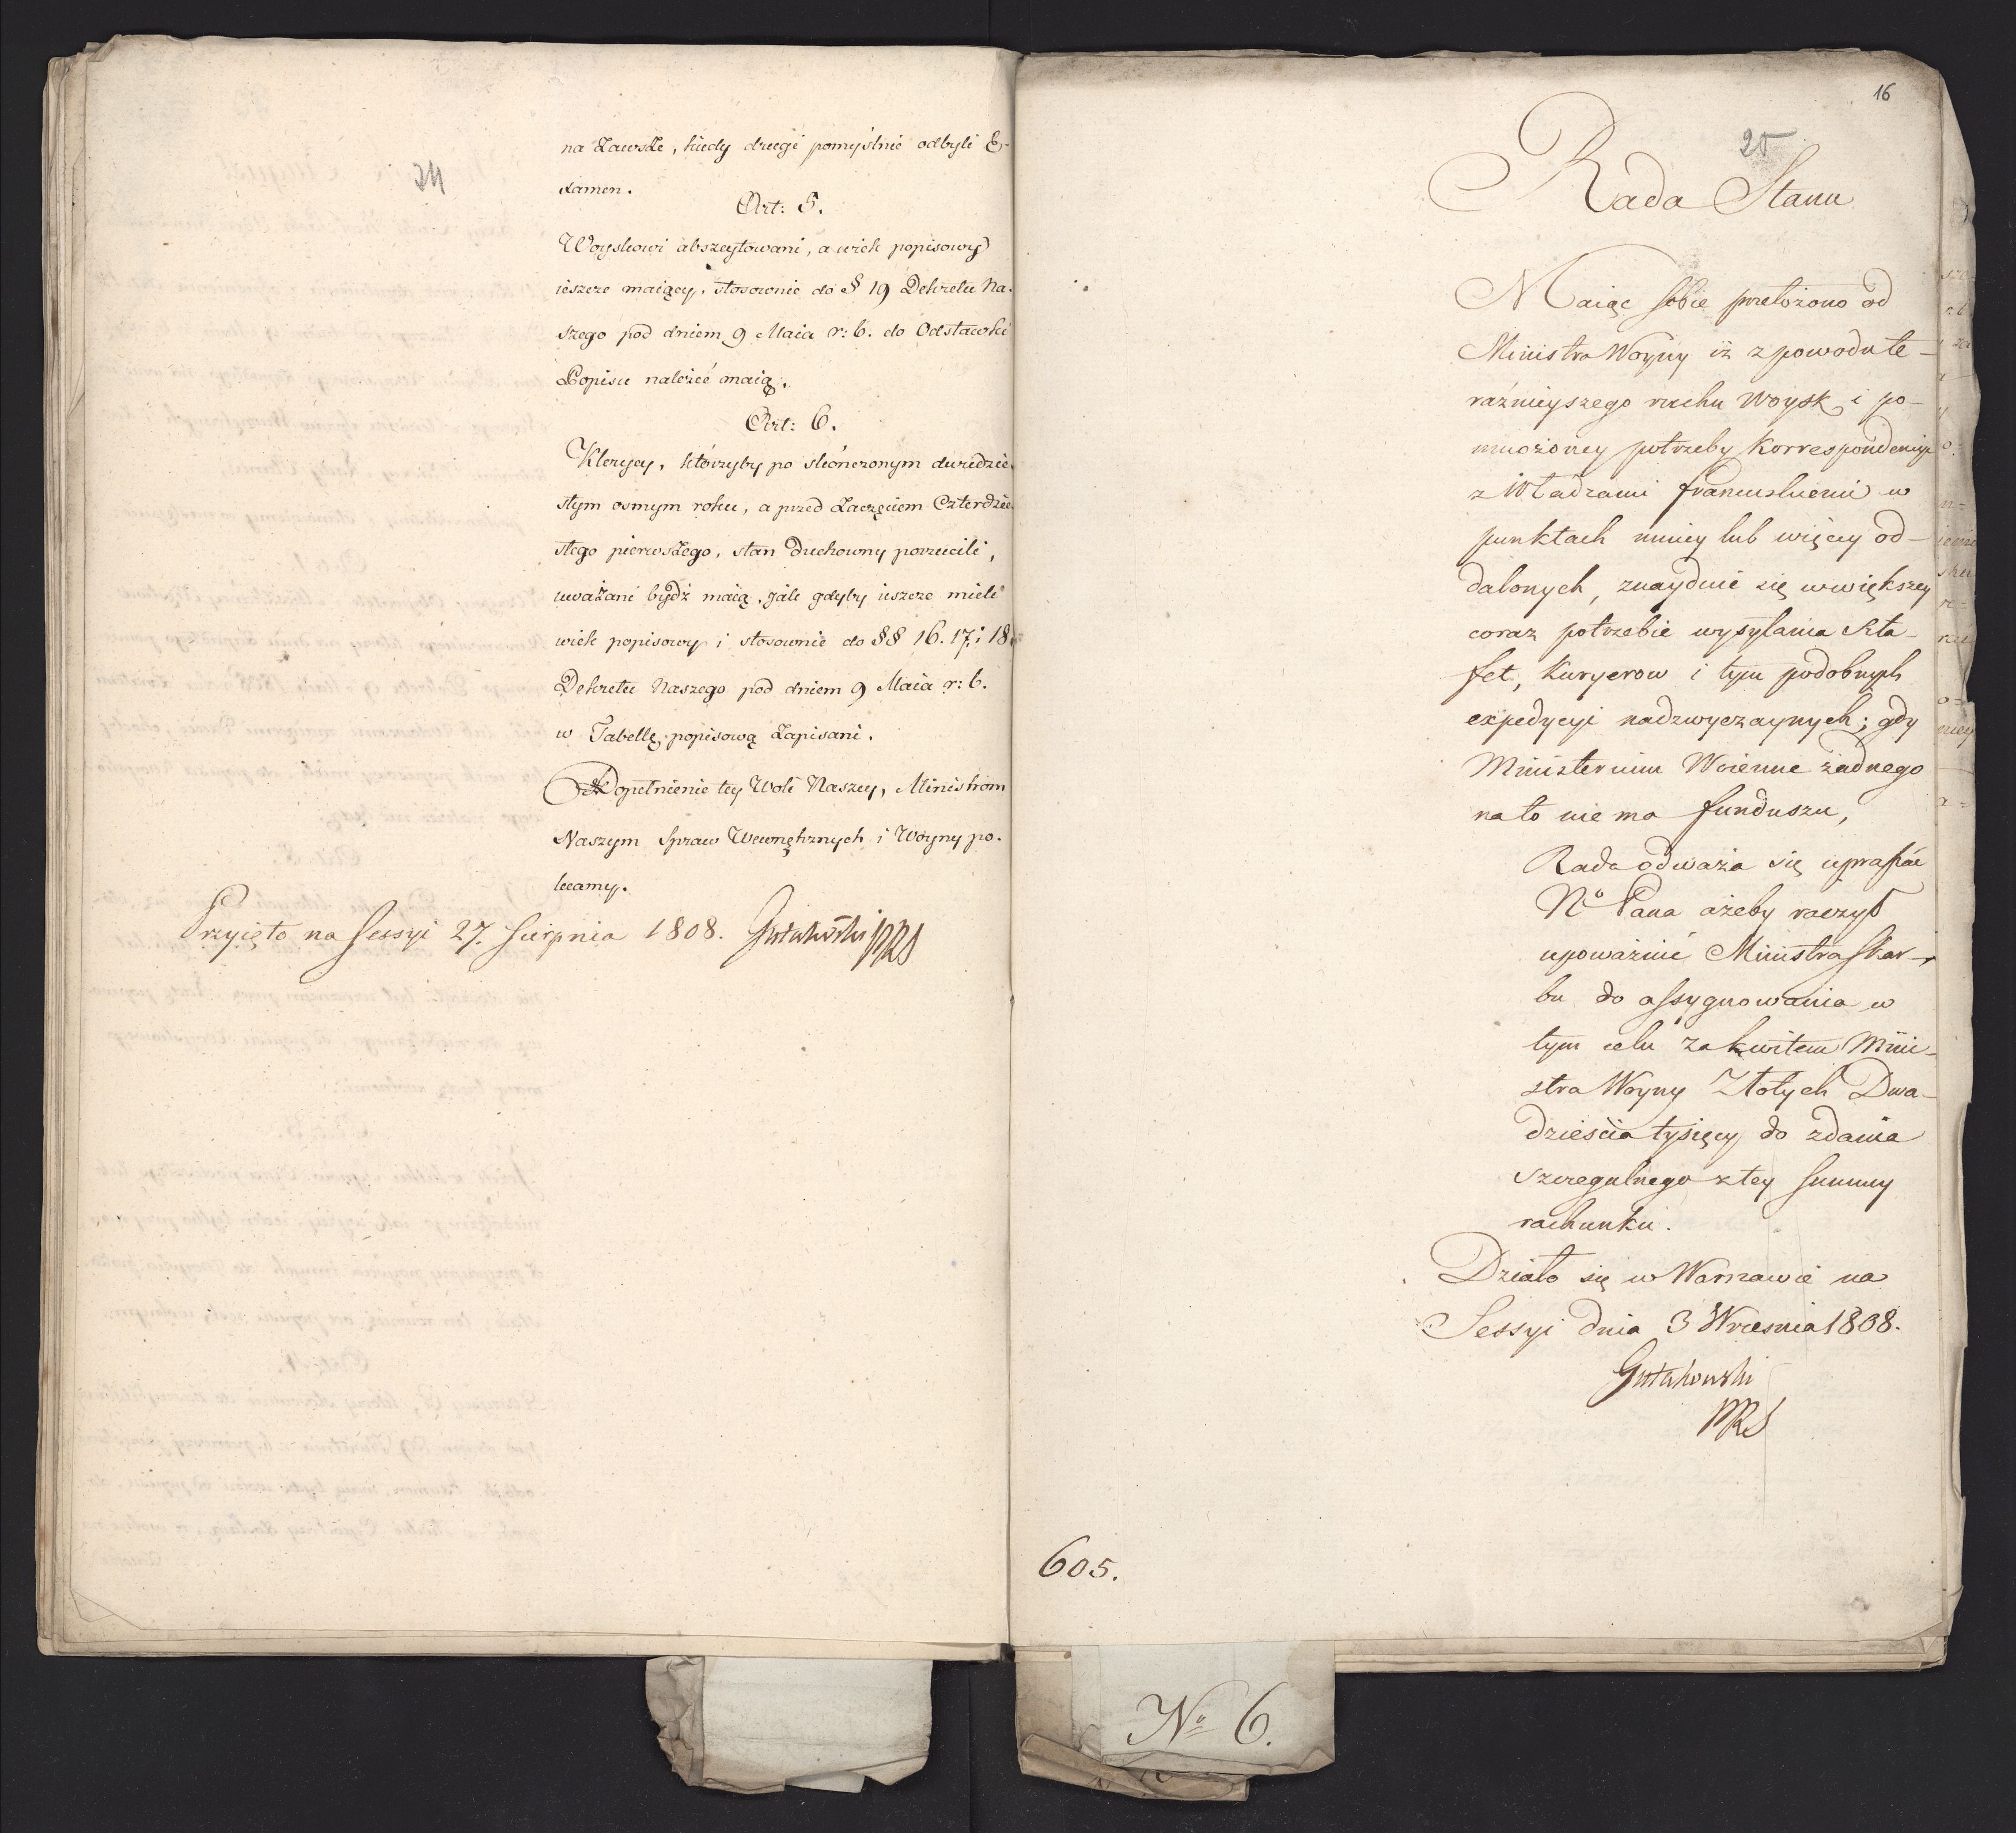 24
na zawsze, kiedy drugi pomyślnie odbyli E-
xamen.
Art: 5.
Woyskowi abszeytowani, a wiek popisowy
ieszcze maiący, stosownie do § 19 Dekretu Na-
szego pod dniem 9 Maia r: b. do Odstawki
Popisu należeć maią.
Art: 6.
Klerycy, którzyby po skończonym dwudzie-
stym osmym roku, a przed zaczęciem Czterdzie-
stego pierwszego, stan Duchowny porzucili,
uważani bydź maią, jak gdyby ieszcze mieli
wiek popisowy i stosownie do §§ 16. 17. i 18.
Dekretu Naszego pod dniem 9 Maia r: b.
w Tabellę popisową zapisani.
Dopełnienie tey Woli Naszey, Ministrom
Naszym Spraw Wewnętrznych i Woyny po-
lecamy.
Przyięto na Sessyi 27. Sierpnia 1808. Gutakowski PRS
16
25
Rada Stanu
Maiąc sobie przełożono od
Ministra Woyny iż z powodu te-
raźnieyszego ruchu Woysk i po-
mnożoney potrzeby Korrespondencyi
z Władzami francuskiemi w
punktach mniey lub więcey od-
dalonych, znayduie się w większey
coraz potrzebie wysyłania Szta-
fet, Kuryerow i tym podobnych
expedycyi nadzwyczaynych; gdy
Ministerium Woienne żadnego
na to nie ma funduszu,
Rada odważa się upraszać
No Pana ażeby raczył
upoważnić Ministra Skar-
bu do assygnowania w
tym celu za kwitem Mini-
stra Woyny Złotych Dwa-
dzieścia tysięcy do zdania
szczegulnego z tey summy
rachunku.
Działo się w Warszawie na
Sessyi dnia 3 Wrzesnia 1808.
Gutakowski
PRS
605.
No 6.